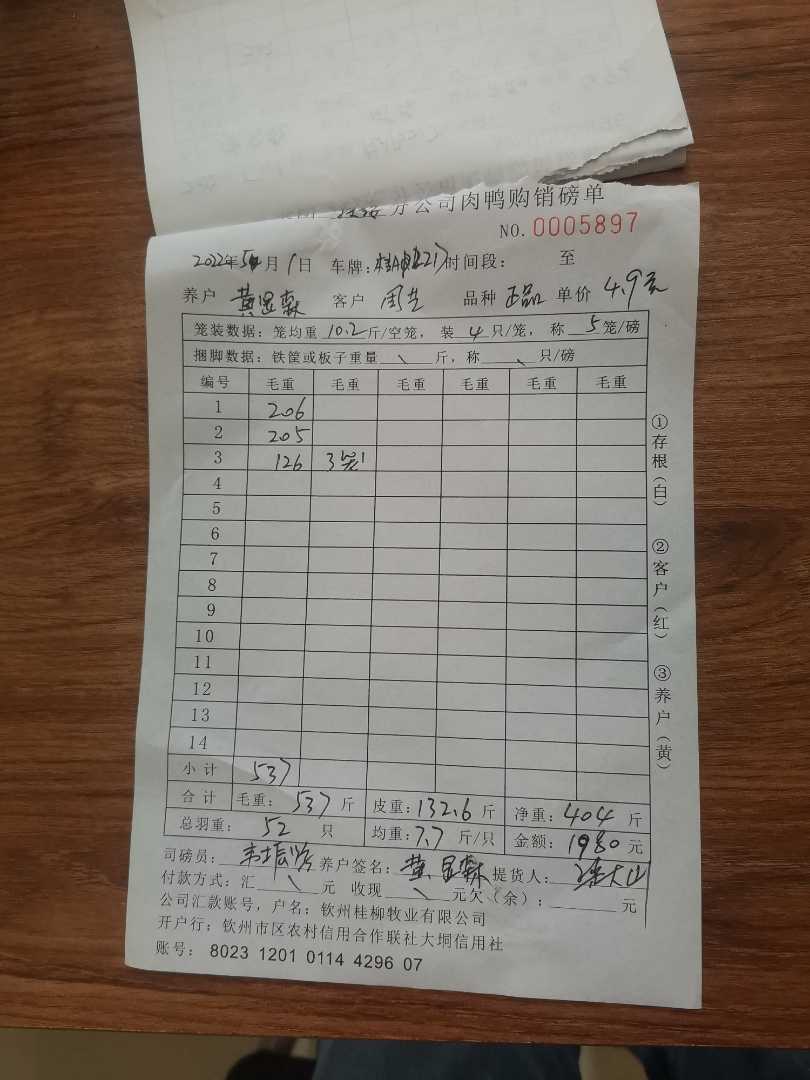 分公司肉鸭购销磅单
NO. 0005897
2022年5月1日 车牌: 时间段: 至
养户 黄显森 客户 品种 正品 单价 4.9元
笼装数据: 笼均重 10.2 斤/空笼, 装 4 只/笼, 称 5 笼/磅
捆脚数据: 铁筐或板子重量 、 斤, 称 、 只/磅
编号 毛重 毛重 毛重 毛重 毛重 毛重
1 206
2 205
3 126 3笼
4
5
6
7
8
9
10
11
12
13
14
小计 537
合计 毛重: 537 斤 皮重: 132.6 斤 净重: 404 斤
总羽重: 52 只 均重: 7.7 斤/只 金额: 1980 元
司磅员: 养户签名: 黄显森 提货人:
付款方式: 汇 、 元 收现 、 元欠(余): 元
公司汇款账号, 户名: 钦州桂柳牧业有限公司
开户行: 钦州市区农村信用合作联社大垌信用社
账号: 8023 1201 0114 4296 07
①存根(白)
②客户(红)
③养户(黄)